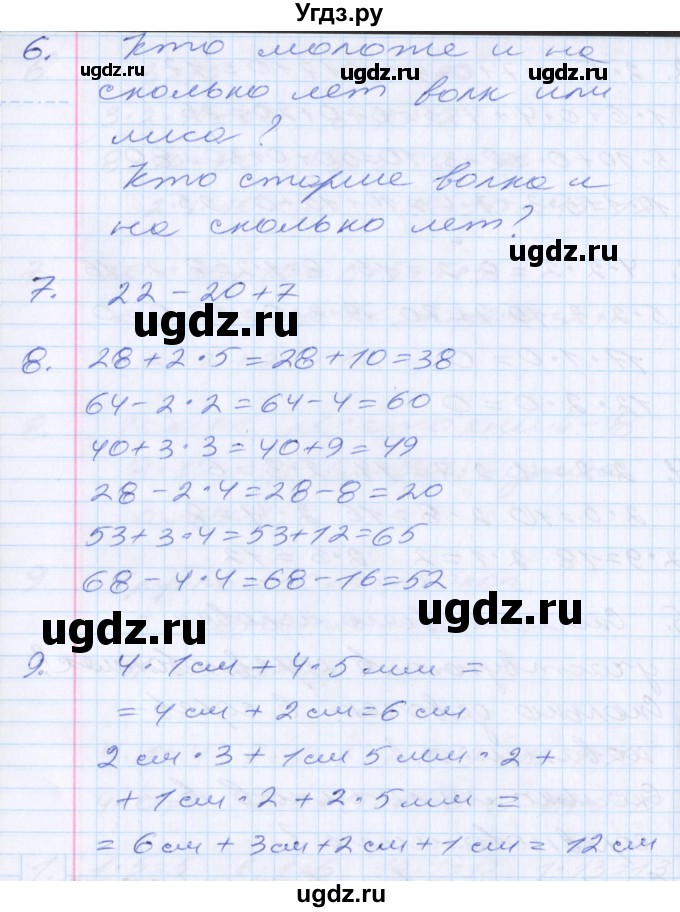 Угдз.ру
6. Кто моложе и на
ugdz.ru ugdz.ru
сколько лет волк или
лиса?
ugdz.ru
Кто старше волка и
на сколько лет?
ugdz.ru
7. 22 - 20 + 7
ugdz.ru
8. 28 + 2 · 5 = 28 + 10 = 38
64 - 2 · 2 = 64 - 4 = 60
40 + 3 · 3 = 40 + 9 = 49
28 - 2 · 4 = 28 - 8 = 20
53 + 3 · 4 = 53 + 12 = 65
68 - 4 · 4 = 68 - 16 = 52
ugdz.ru
ugdz.ru
9. 4 · 1 см + 4 · 5 мм =
= 4 см + 2 см = 6 см
2 см · 3 + 1 см 5 мм · 2 +
+ 1 см · 2 + 2 · 5 мм =
ugdz.ru
= 6 см + 3 см + 2 см + 1 см = 12 см
ugdz.ru